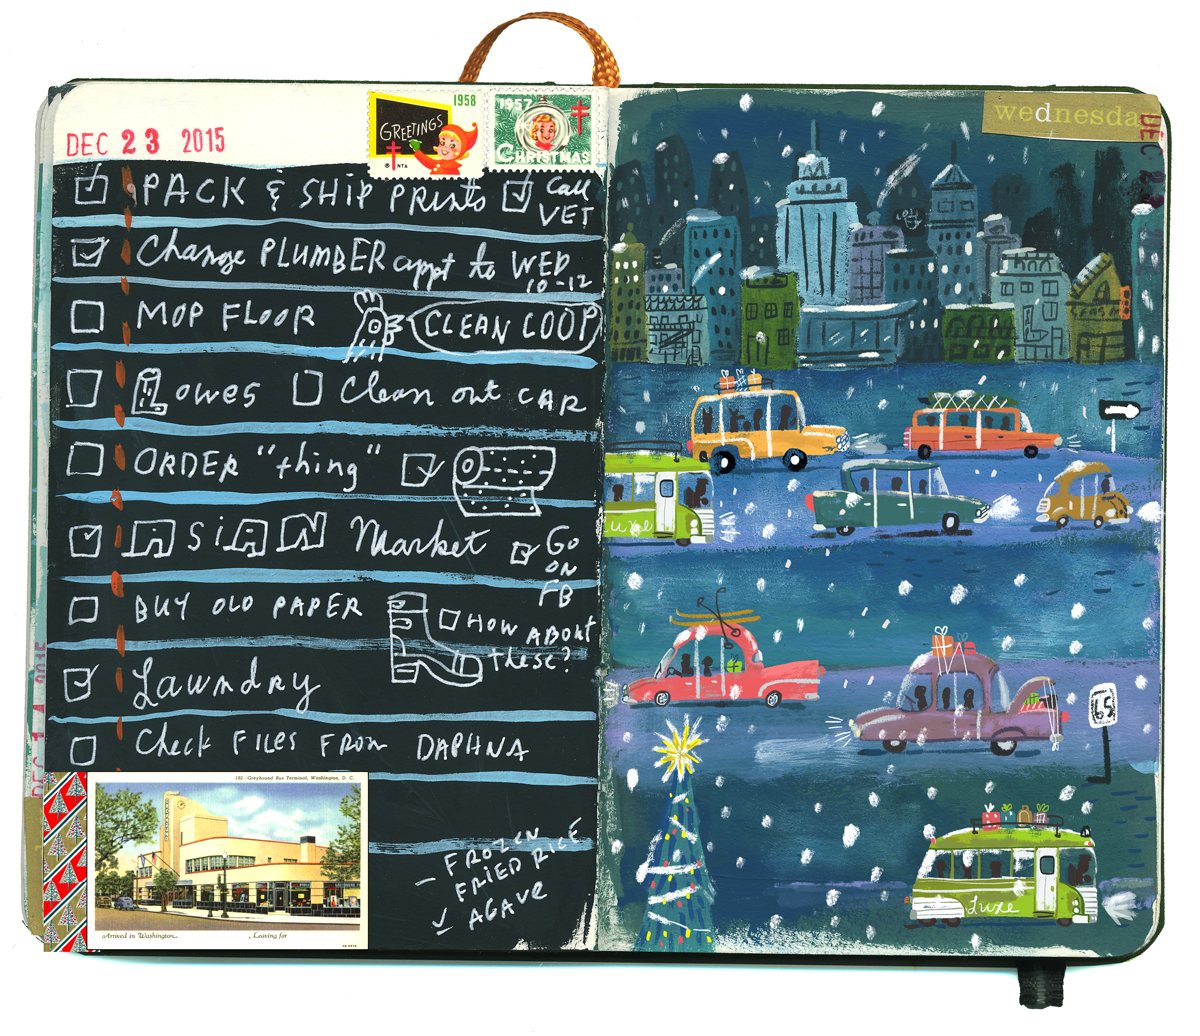 DEC 23 2015
1958
GREETINGS
® NTA
1957
CHRISTMAS
PACK & SHIP PRints
Call
VET
Change PLUMBER appt to WED
10-12
MOP FLOOR
CLEAN COOP
Lowes
Clean out CAR
ORDER "thing"
ASiAN Market
Go
ON
FB
BUY OLD PAPER
HOW ABOUT
these?
Laundry
Check FILES FROM DAPHNA
- FROZEN
FRIED RICE
AGAVE
152—Greyhound Bus Terminal, Washington, D. C.
Arrived in Washington
Leaving for
wednesda
DEC 2
uxe
65
Luxe